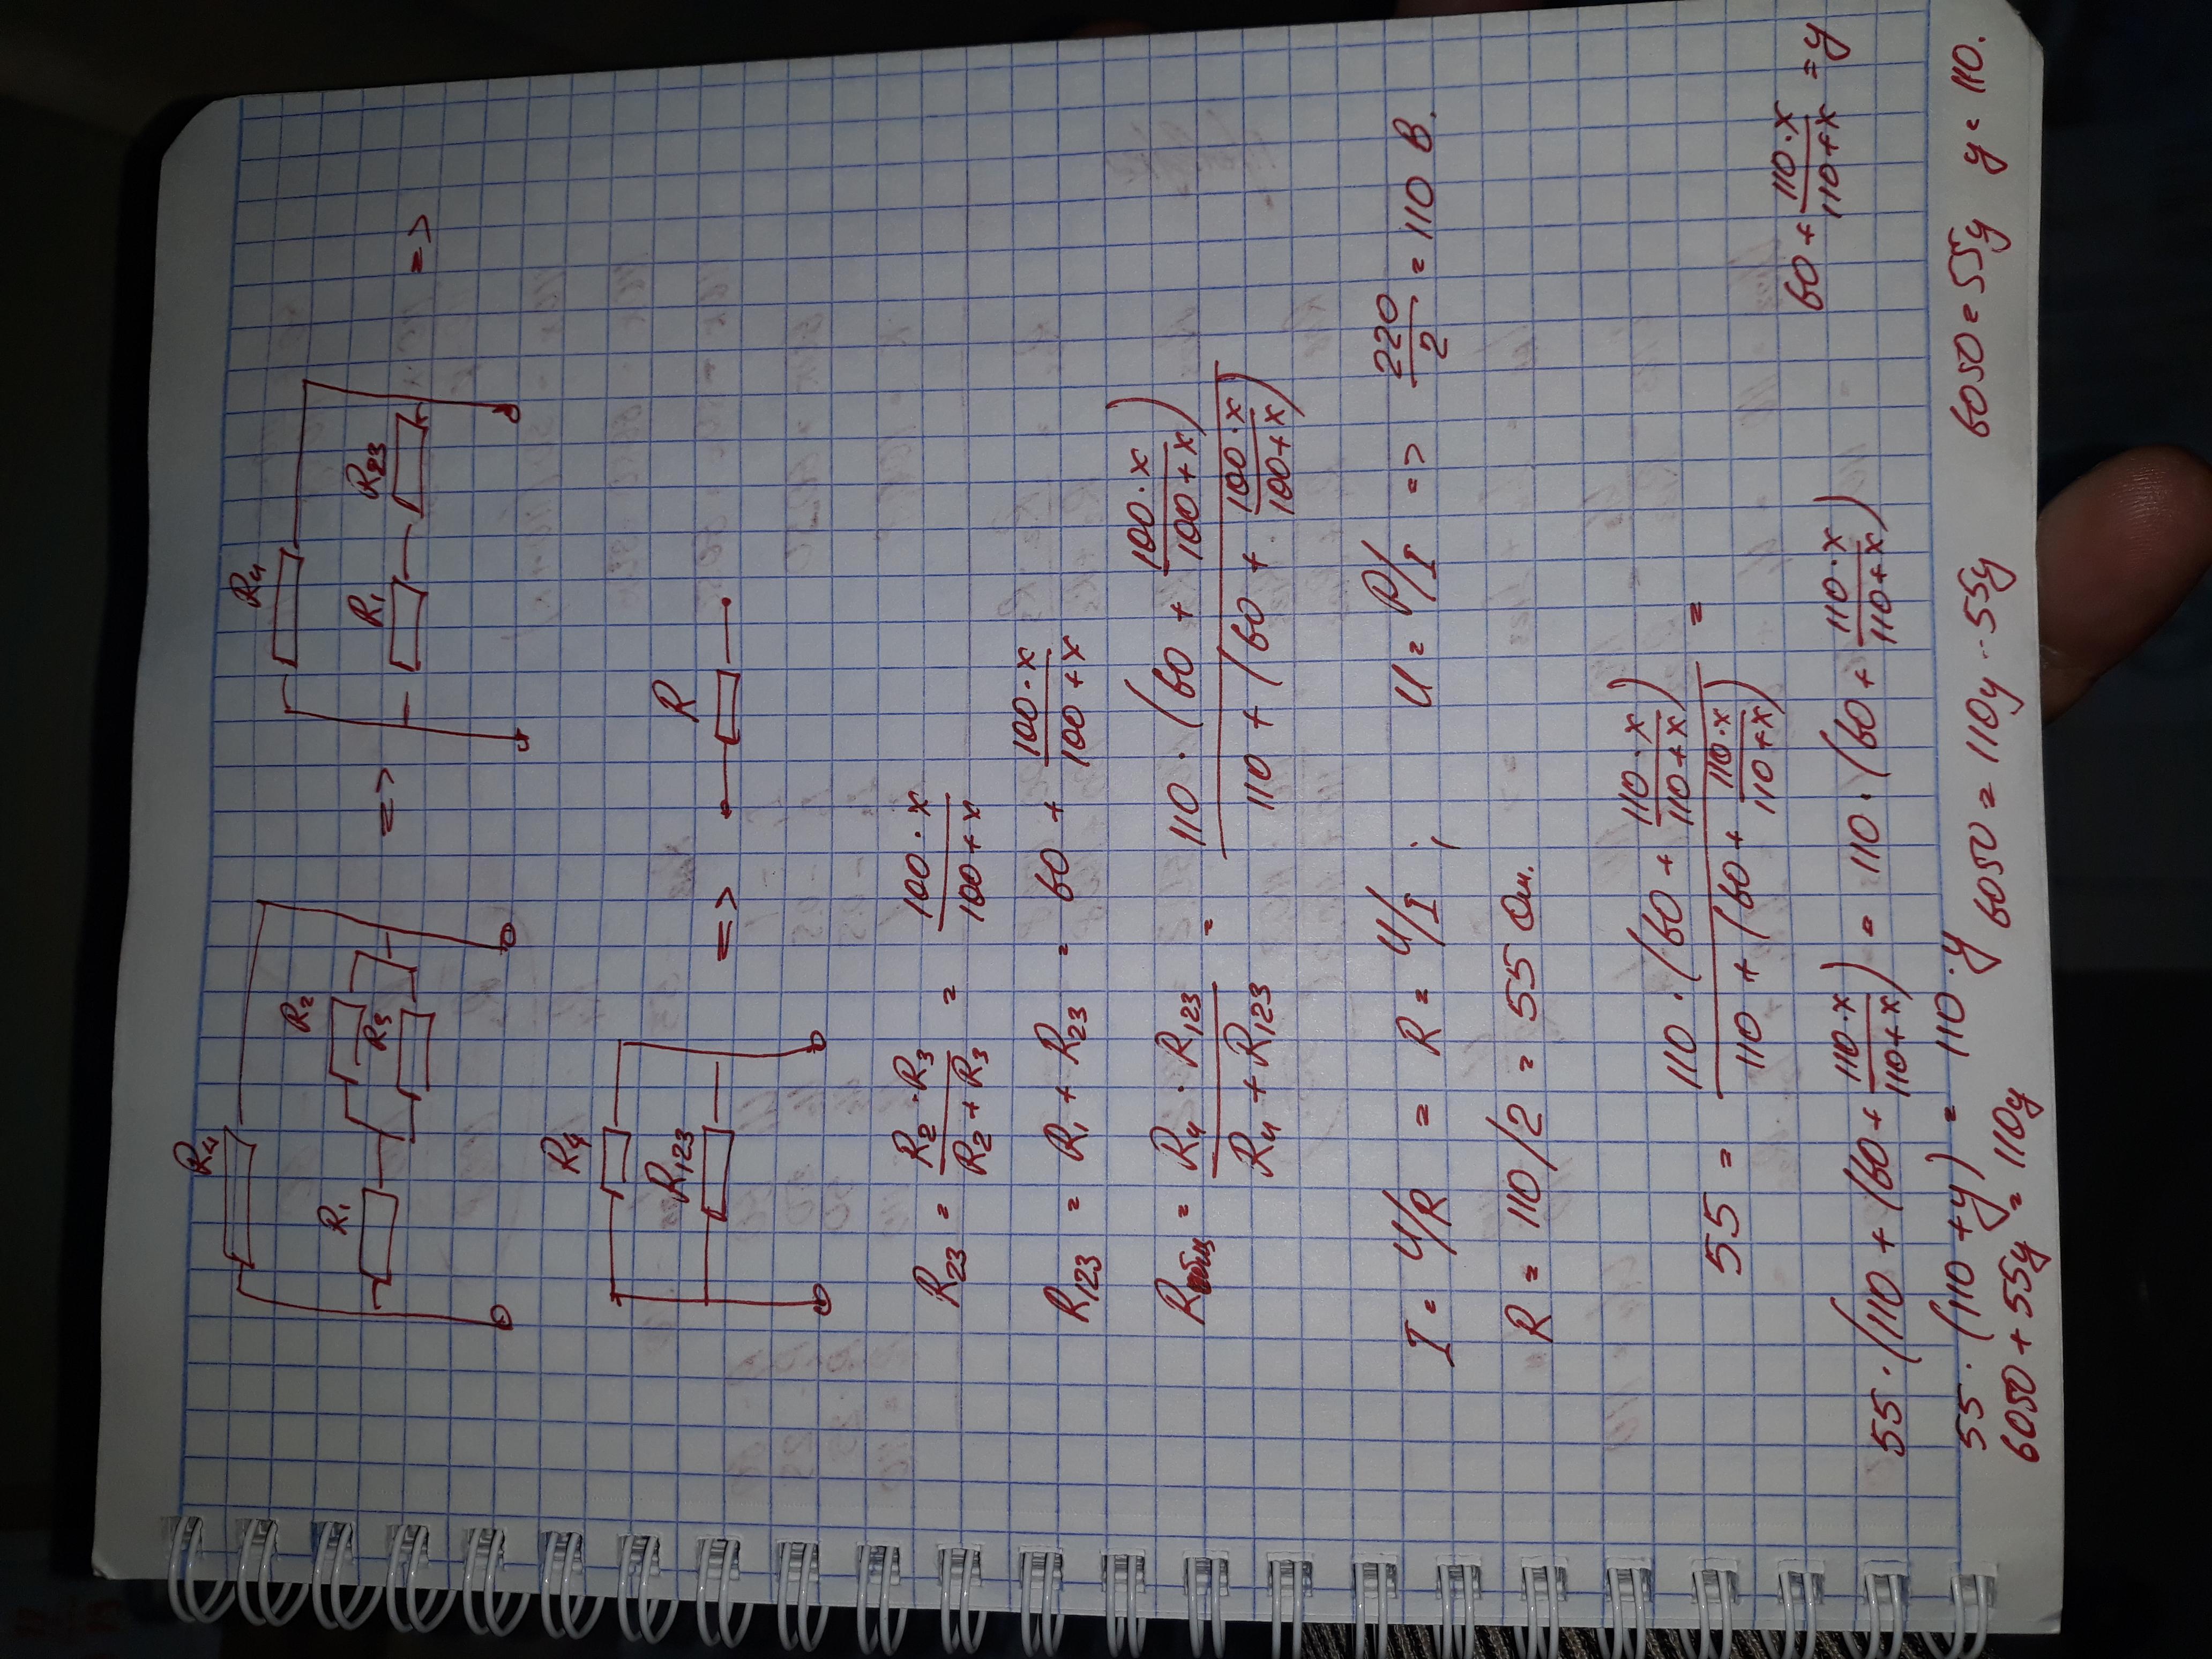 R₄ R₁ R₂ R₃ => R₄ R₁ R₂₃ =>
R₄ R₁₂₃ => R
R₂₃ = (R₂ · R₃)/(R₂ + R₃) = (100 · x)/(100 + x)
R₁₂₃ = R₁ + R₂₃ = 60 + (100 · x)/(100 + x)
Rобщ = (R₄ · R₁₂₃)/(R₄ + R₁₂₃) = (110 · (60 + (100 · x)/(100 + x)))/(110 + (60 + (100 · x)/(100 + x)))
I = U/R = R = U/I ; U = P/I => 220/2 = 110 В.
R = 110/2 = 55 Ом.
55 = (110 · (60 + (110 · x)/(110 + x)))/(110 + (60 + (110 · x)/(110 + x))) =
60 + (110 · x)/(110 + x) = y
55 · (110 + (60 + (110 · x)/(110 + x))) = 110 · (60 + (110 · x)/(110 + x))
55 · (110 + y) = 110 · y
6050 + 55y = 110y 6050 = 110y - 55y 6050 = 55y y = 110.